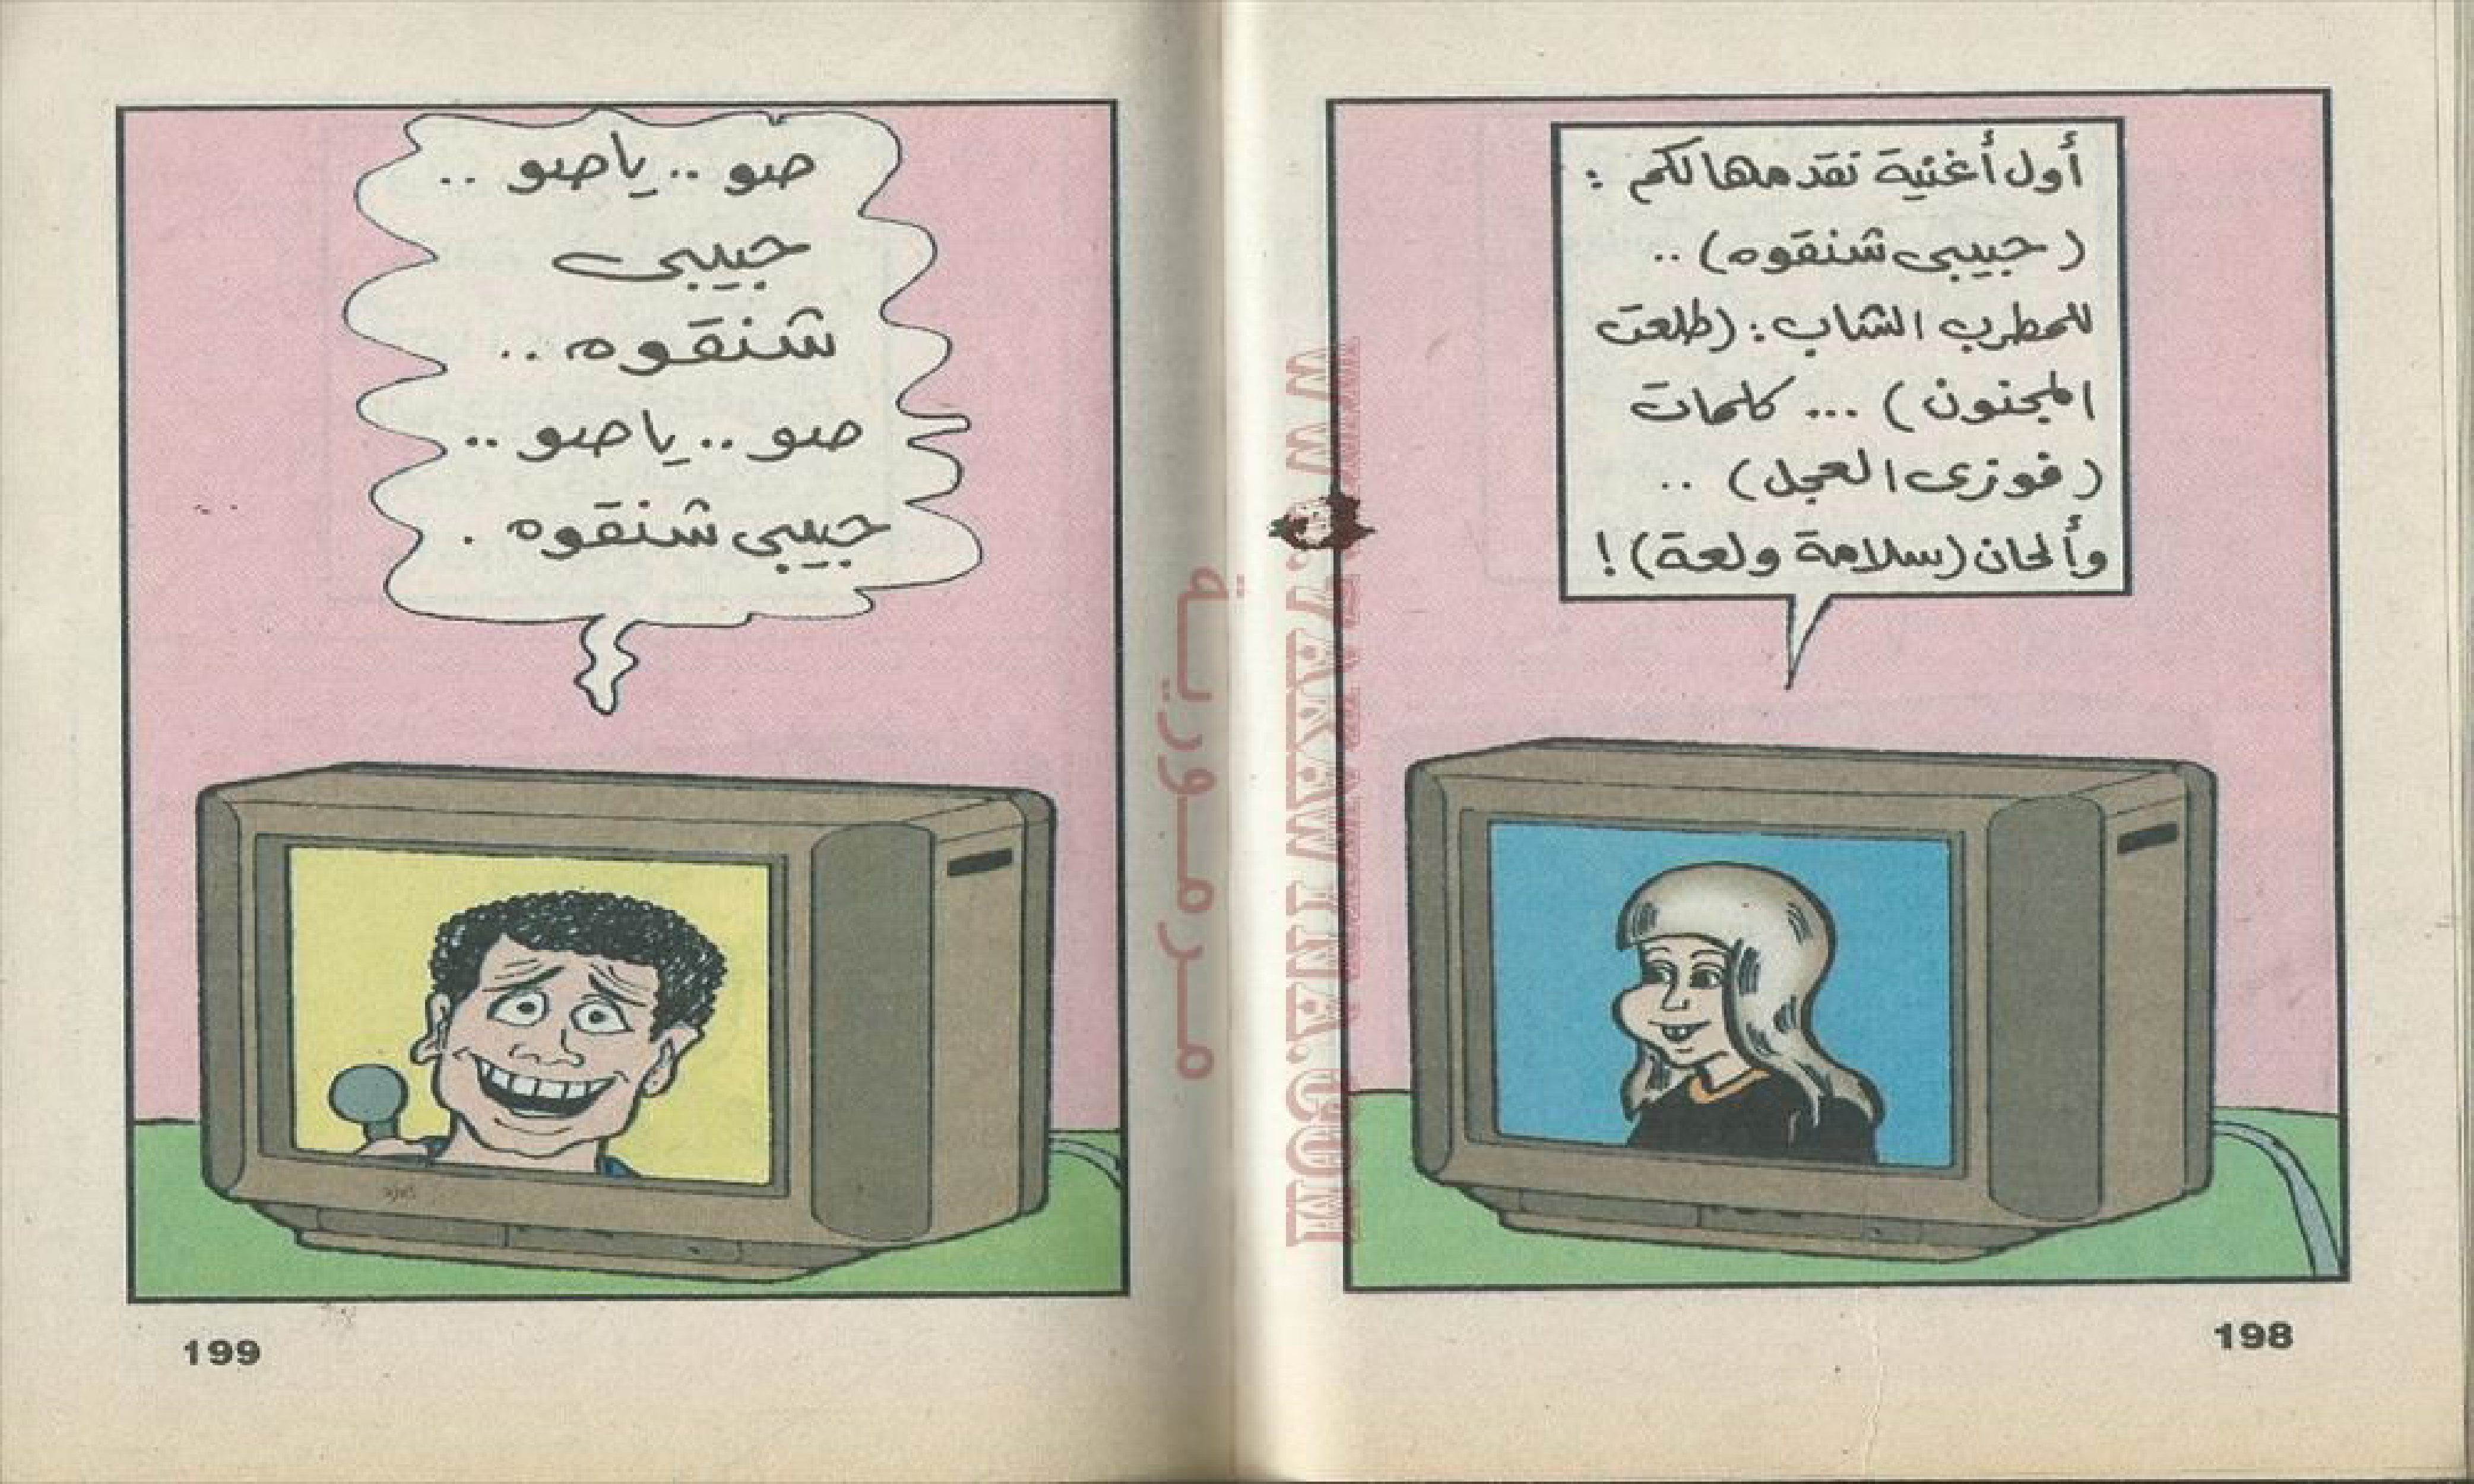 أول أغنية نقدمها لكم :
(حبيبى شنقوه) ..
للمطرب الشاب : (طلعت
المجنون) ... كلمات
(فوزى العجل) ..
وألحان (سلامة ولعة) !
198
صو .. ياصو ..
حبيبى
شنقوه ..
صو .. ياصو ..
حبيبى شنقوه .
199
مرمورية
WWW.ARABCOMICS.NET